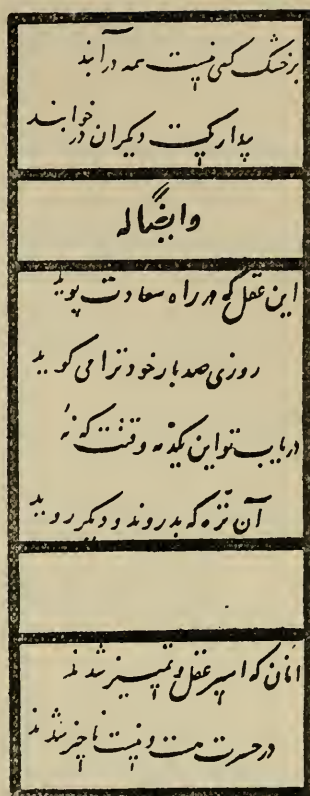 بر خشک کسی نیست همه در آبند
بیدار یکیست دیگران در خوابند
وایضاً له
این عقل که در راه سعادت پوید
روزی صد بار خود ترا می گوید
دریاب تو این یکدمه وقتت که نهٔ
آن تره که بدروند و دیگر روید
آنان که اسیر عقل و تمییز شدند
در حسرت هست و نیست ناچیز شدند